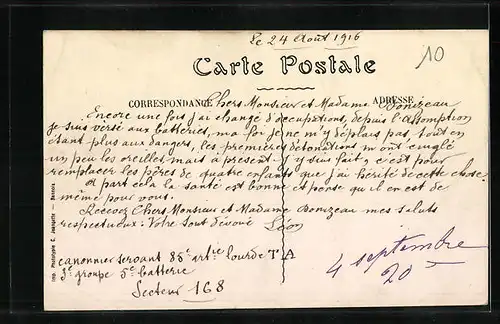 Le 24 Août 1916
10
Carte Postale
CORRESPONDANCE
ADRESSE
Chers Monsieur et Madame Bonizeau
Encore une fois j'ai changé d'occupations, depuis l'Assomption
je suis versé aux batteries, ma foi je ne m'y déplais pas, tout en
étant plus aux dangers, les premières détonations m'ont cinglé
un peu les oreilles mais à present j'y suis fait, c'est pour
remplacer les pères de quatre enfants que j'ai hérité de cette chose.
A part cela la santé est bonne et pense qu'il en est de
même pour vous.
Recevez Chers Monsieur et Madame Bonizeau mes saluts
respectueux. Votre tout dévoué Léon
canonnier servant 85e artie lourde T A
3e groupe 5e batterie
Secteur 168
4 septembre
20
Imp. Phototypie